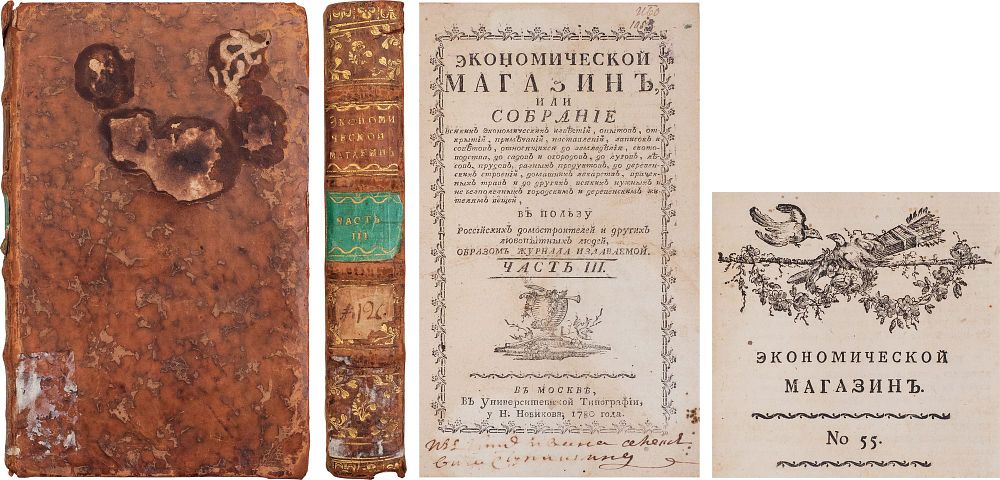 ЭКОНОМИ
ЧЕСКОЙ
МАГАЗИНЪ
ЧАСТЬ
III
126.
ЭКОНОМИЧЕСКОЙ
МАГАЗИНЪ,
ИЛИ
СОБРАНІЕ
всякихъ экономическихъ извѣстій, опытовъ, от-
крытій, примѣчаній, наставленій, записокъ и
совѣтовъ, относящихся до земледѣлія, ското-
водства, до садовъ и огородовъ, до луговъ, лѣ-
совъ, прудовъ, разныхъ продуктовъ, до деревен-
скихъ строеній, домашнихъ лекарствъ, врачеб-
ныхъ травъ и до другихъ всякихъ нужныхъ и
не безполезныхъ городскимъ и деревенскимъ жи-
телямъ вещей,
ВЪ ПОЛЬЗУ
Россійскихъ домостроителей и другихъ
любопытныхъ людей,
ОБРАЗОМЪ ЖУРНАЛА ИЗДАВАЕМОЙ.
ЧАСТЬ III.
ВЪ МОСКВѢ,
Въ Университетской Типографіи,
у Н. Новикова, 1780 года.
ЭКОНОМИЧЕСКОЙ
МАГАЗИНЪ.
No 55.